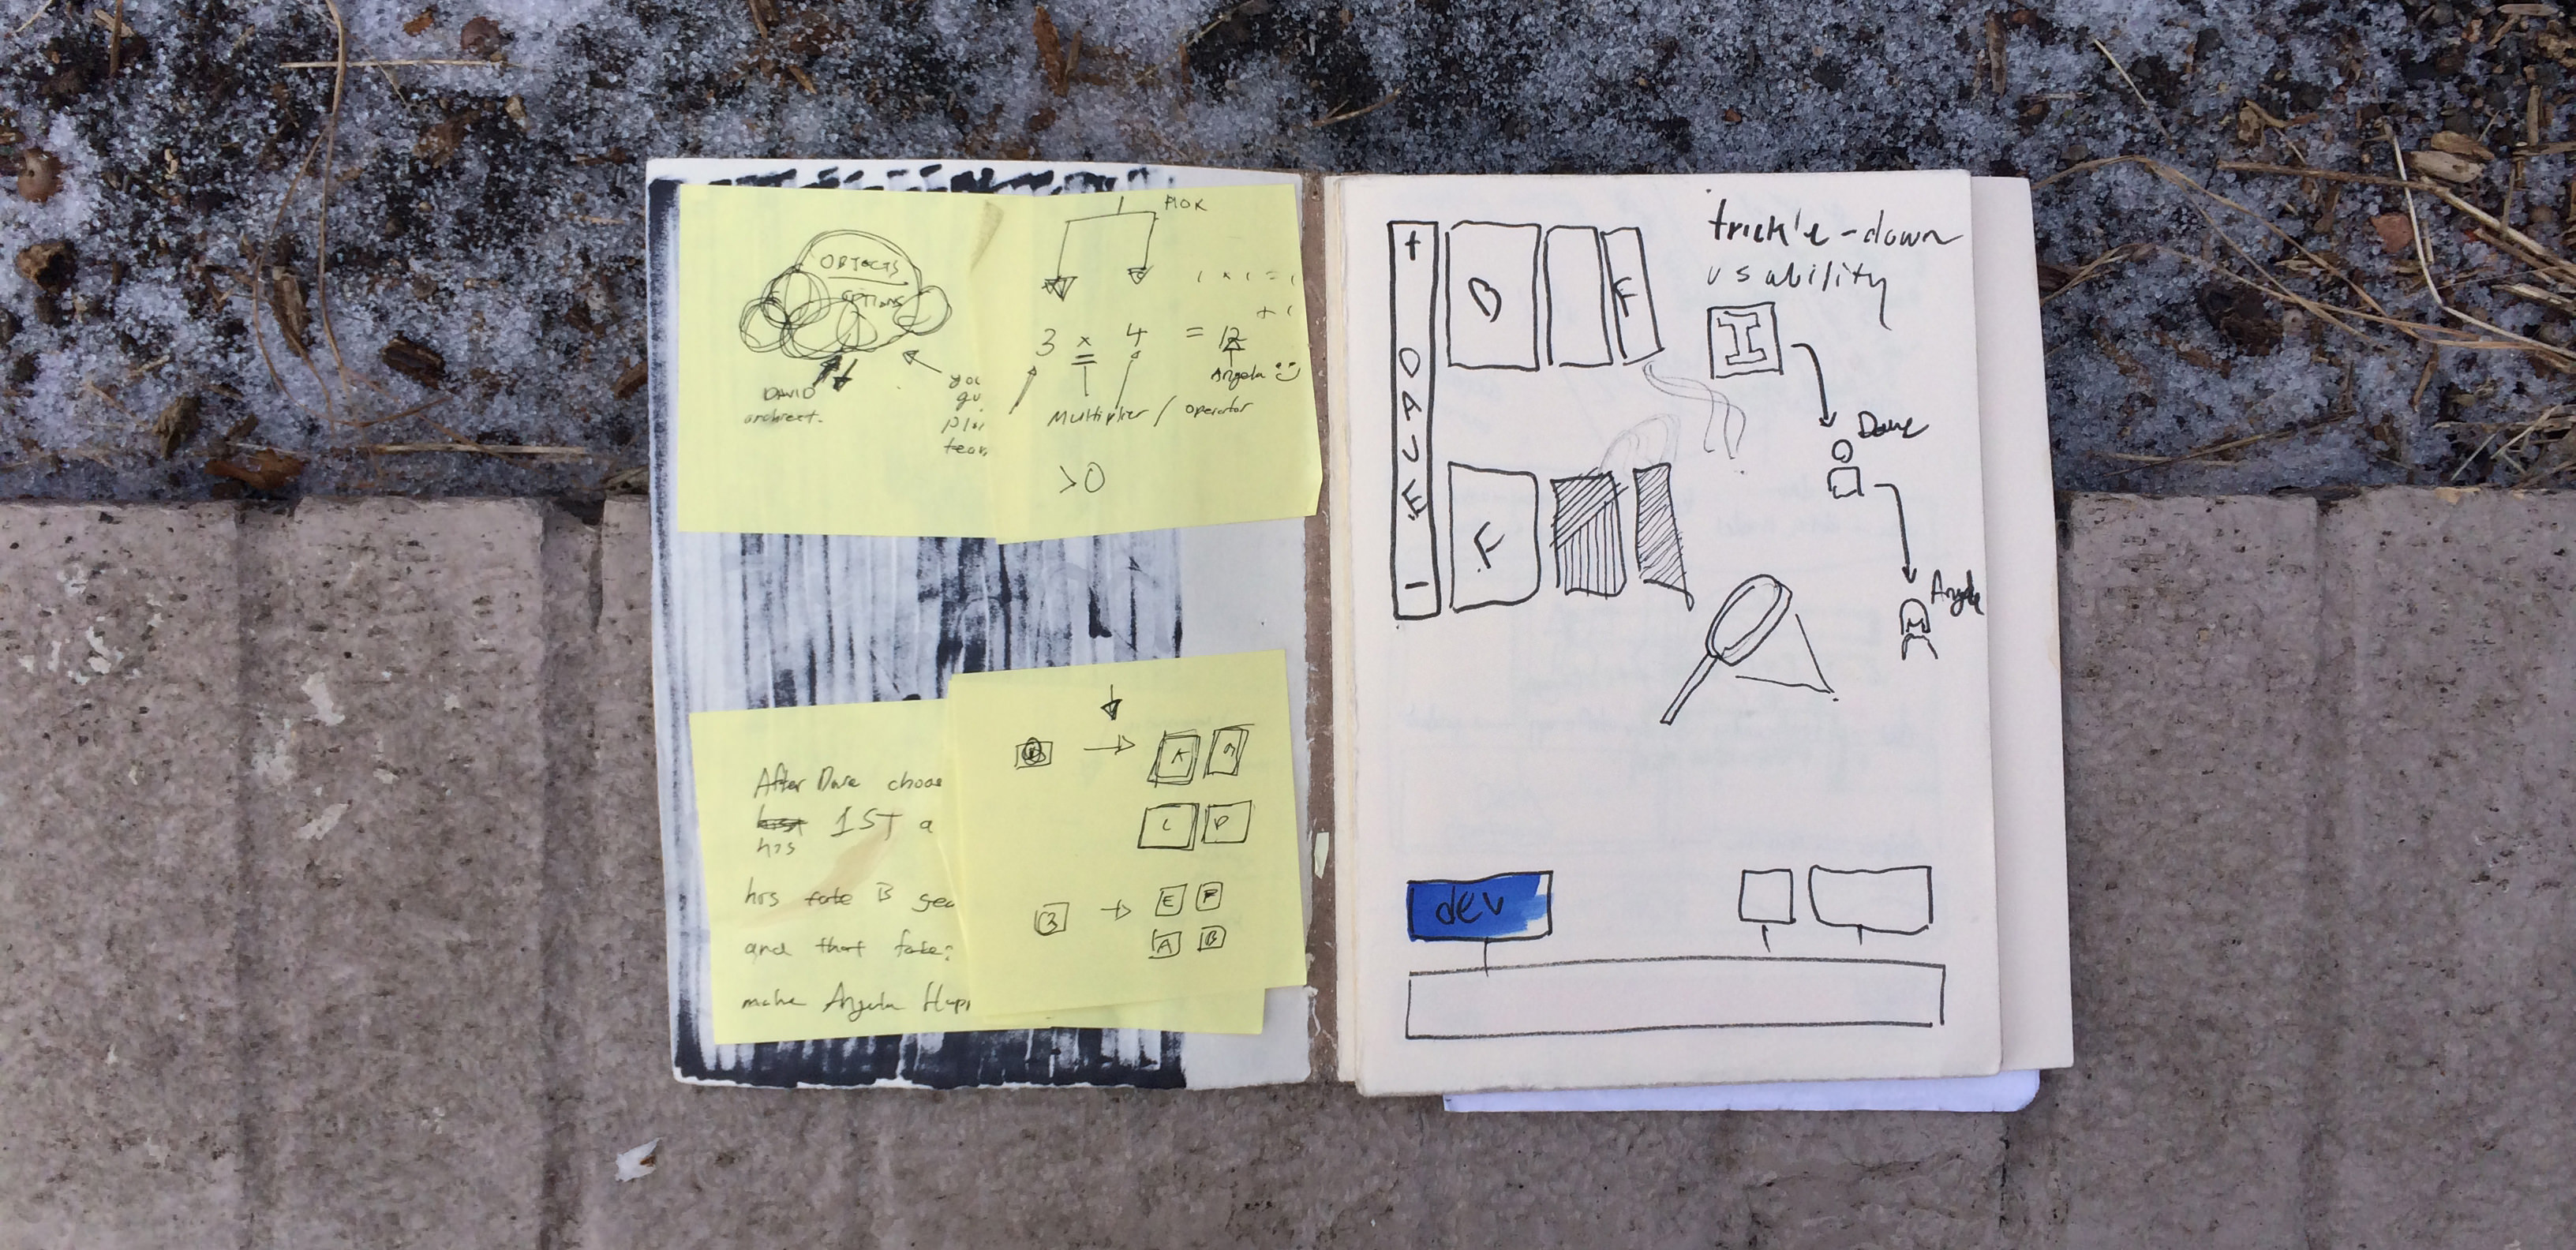 OBJECTS
OPTIONS
DAVID
architect.
you
gu
team
1 x 1 = 1
+ 1
3 x 4 = 12
Angela
Multiplier / operator
>0
After Dave choos
his 1ST a
his fate B
and that fate
make Angela Happ
L P
B
E F
A B
trickle-down
usability
+
D
A
V
E
-
B F
I
Dave
F
Angela
dev